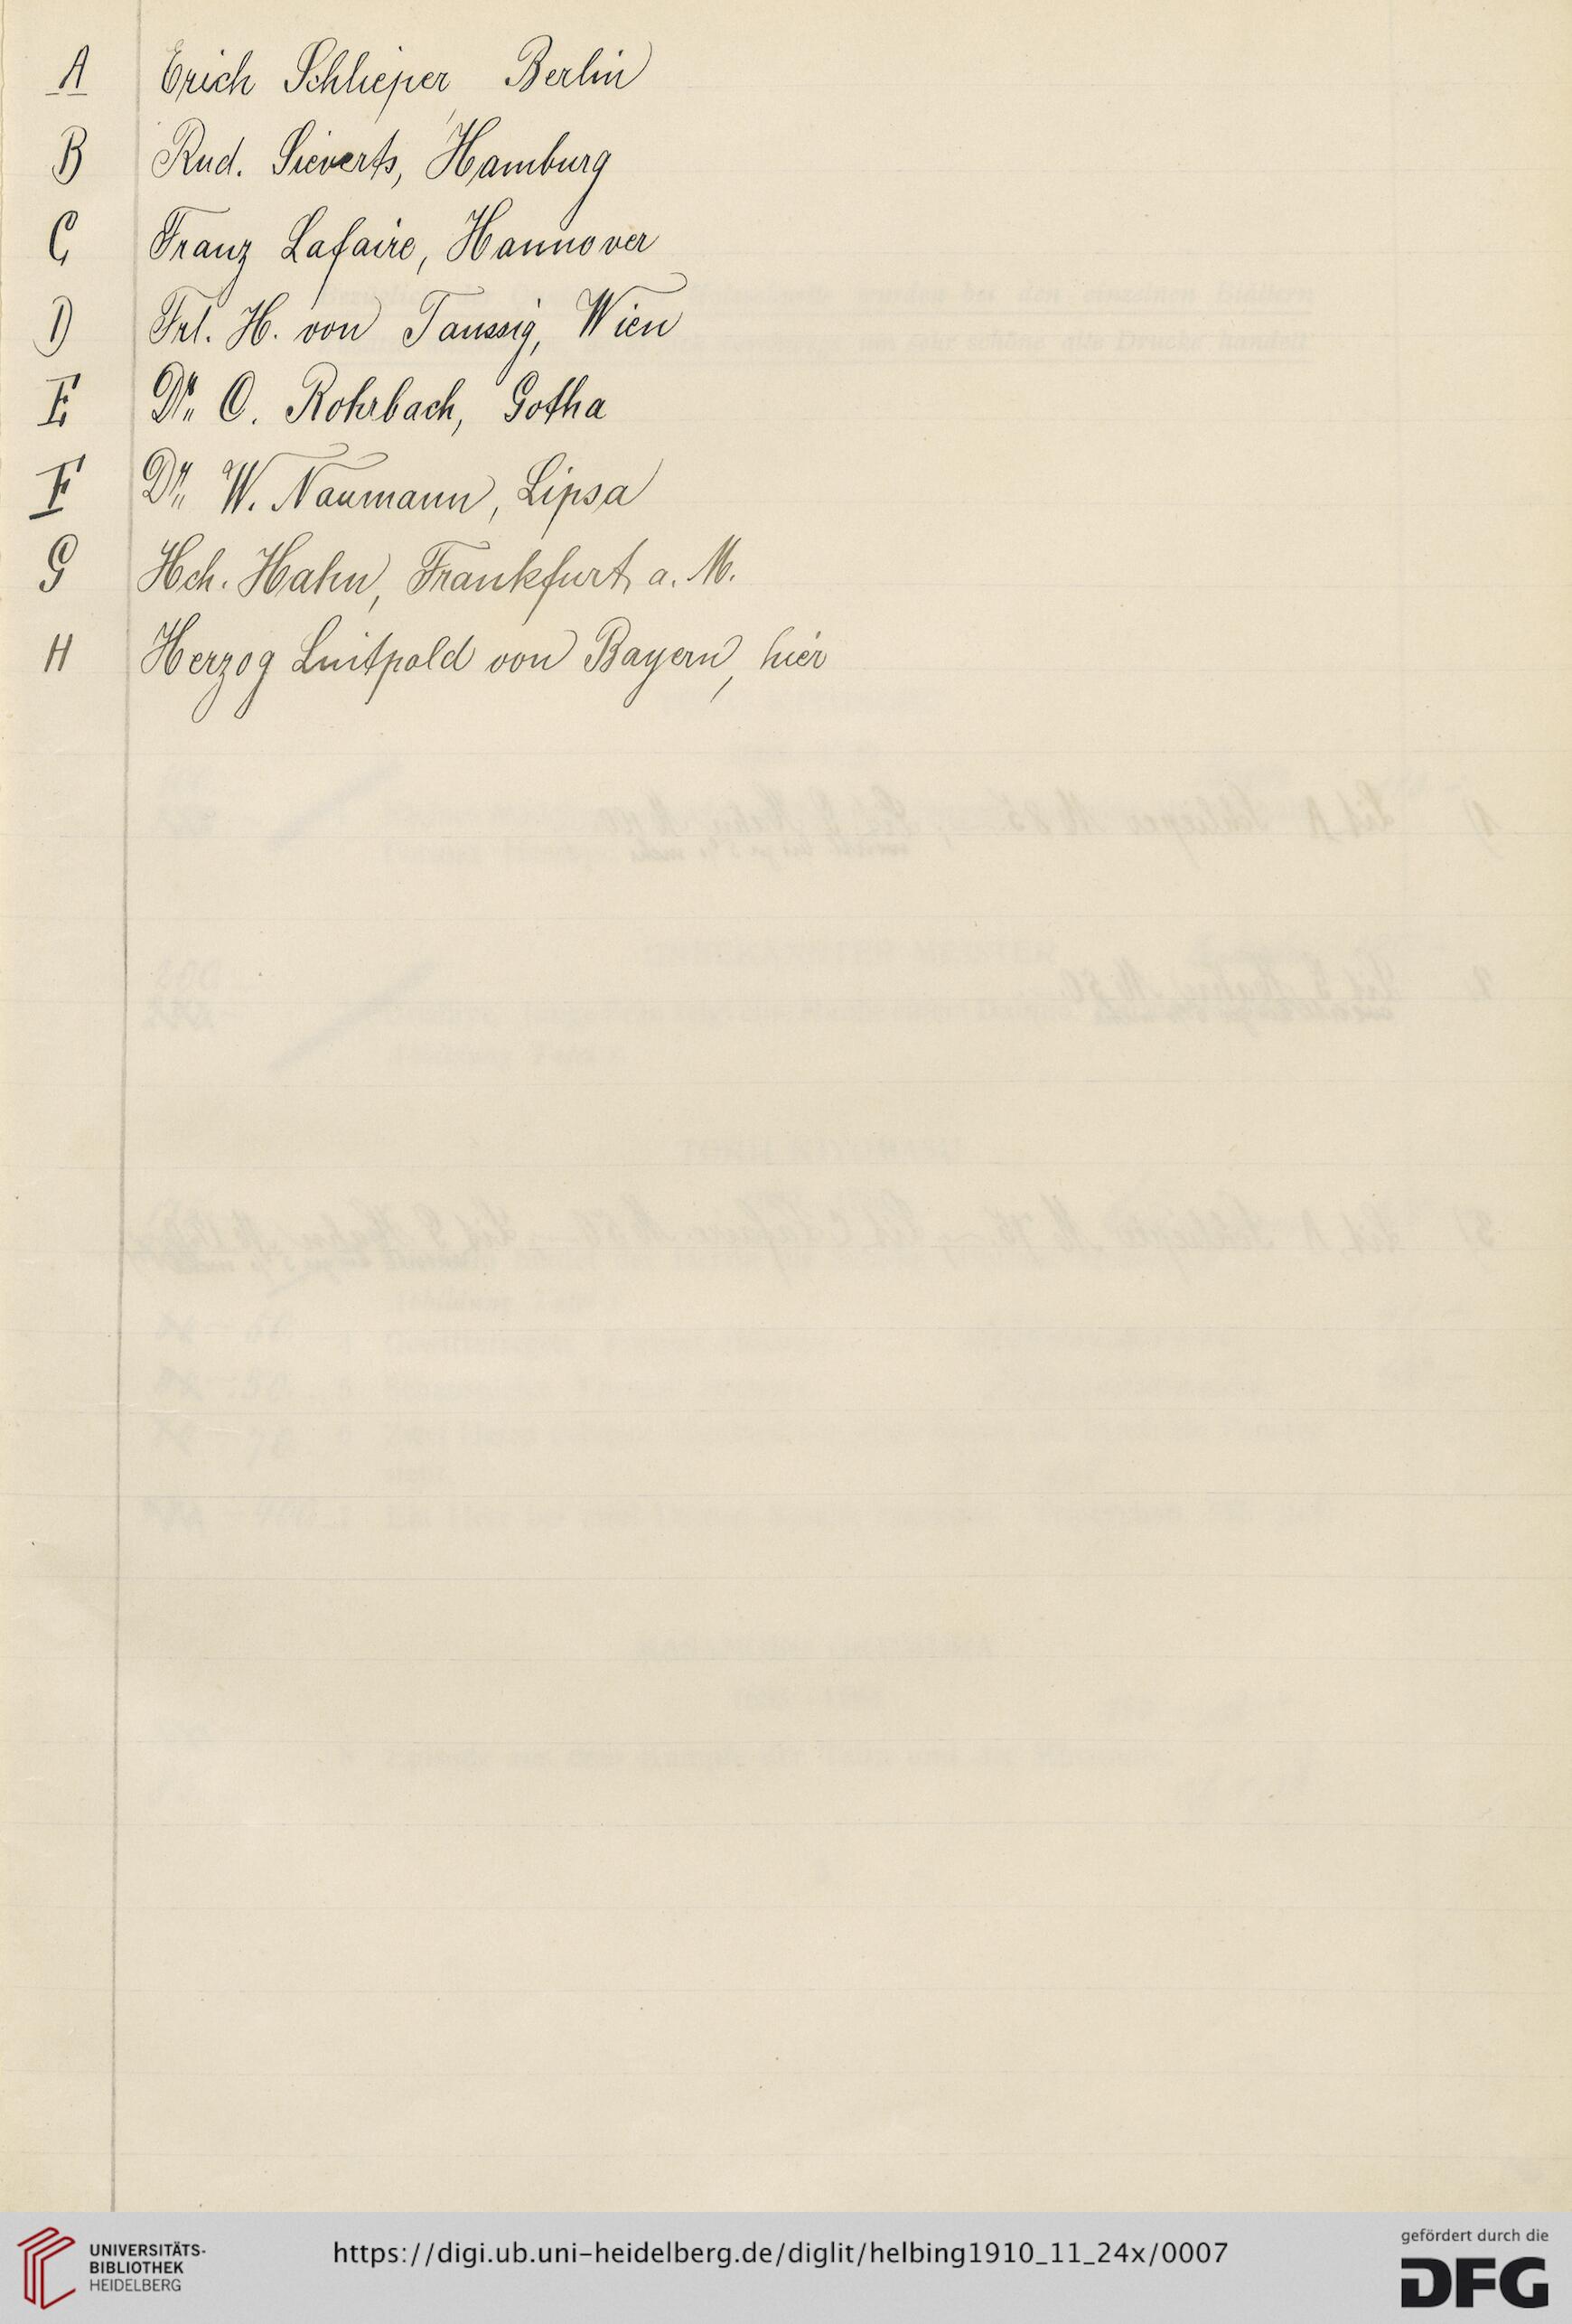 A Erich Schlieper Berlin
B Rud. Sieverts, Hamburg
C Franz Lafaire, Hannover
D Frl. H. von Taussig, Wien
E Dr. O. Rohrbach, Gotha
F Dr. W. Naumann, Lipsa
G Hch. Hahn, Frankfurt a. M.
H Herzog Luitpold von Bayern, hier
UNIVERSITÄTS-
BIBLIOTHEK
HEIDELBERG
https://digi.ub.uni-heidelberg.de/diglit/helbing1910_11_24x/0007
gefördert durch die
DFG